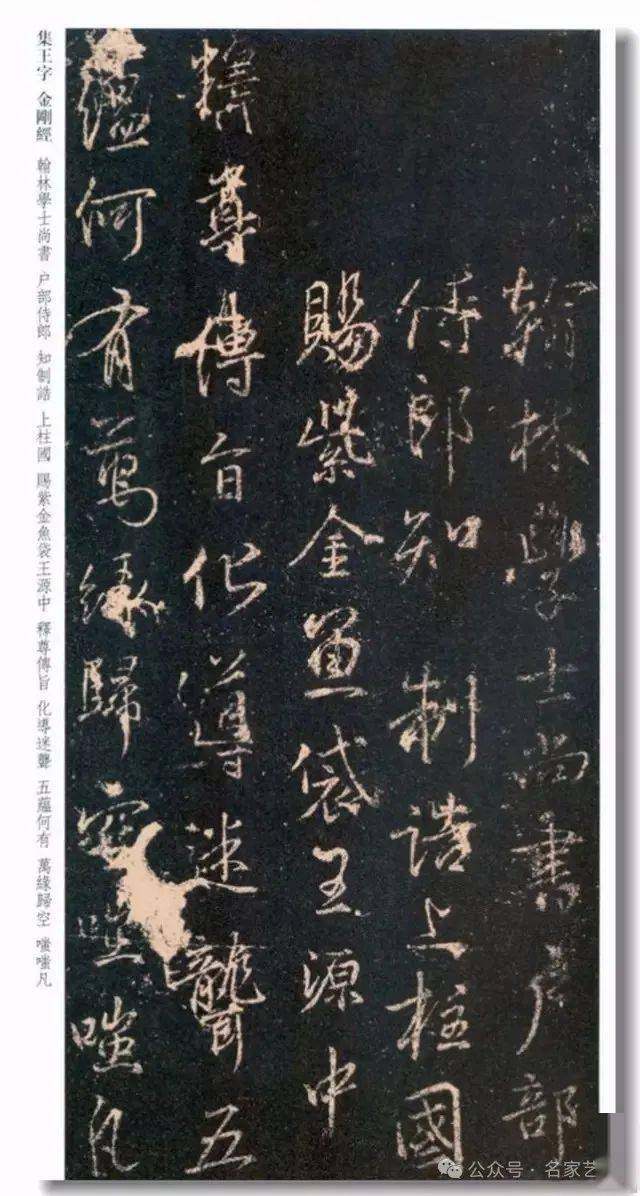 翰林學士尚書户部
侍郎知制誥上柱國
賜紫金魚袋王源中
釋尊傳旨化導迷聾五
蘊何有萬緣歸空嗤嗤凡
集王字 金剛經 翰林學士尚書 户部侍郎 知制誥 上柱國 賜紫金魚袋王源中 釋尊傳旨 化導迷聾 五蘊何有 萬緣歸空 嗤嗤凡
公众号·名家艺